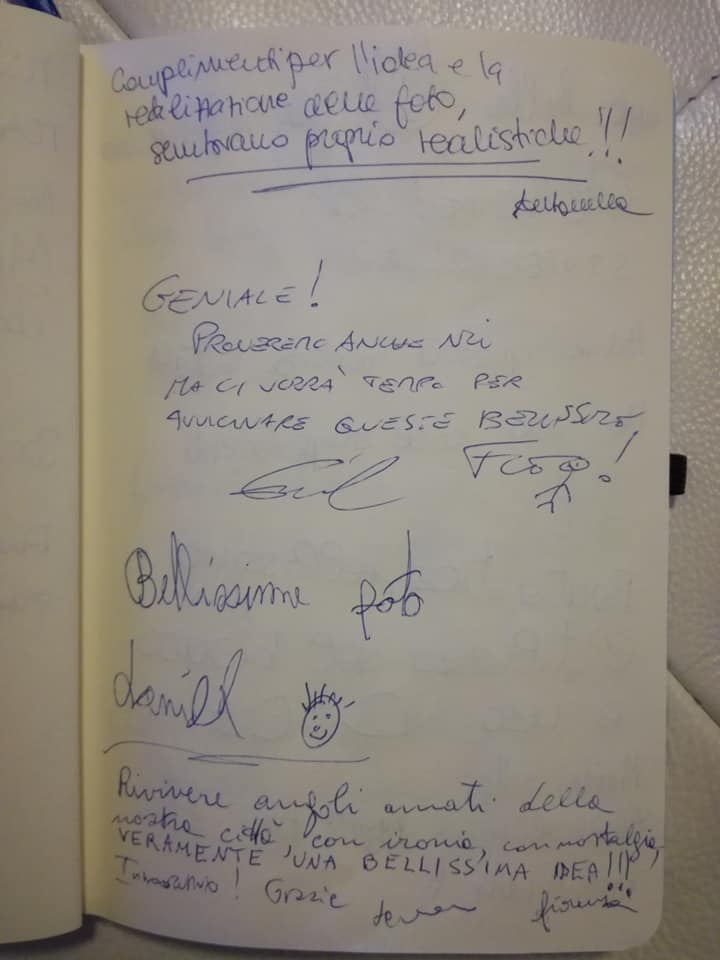 Complimenti per l'idea e la
realizzazione delle foto,
sembrano proprio realistiche!!!
Antonella
GENIALE!
PROVEREMO ANCHE NOI
MA CI VORRÀ TEMPO PER
AVVICINARE QUESTE BELLISSIME
FOTO!
Bellissime foto
Daniel
Rivivere angoli amati della
nostra città, con ironia, con nostalgia,
VERAMENTE UNA BELLISSIMA IDEA!!!
Grazie